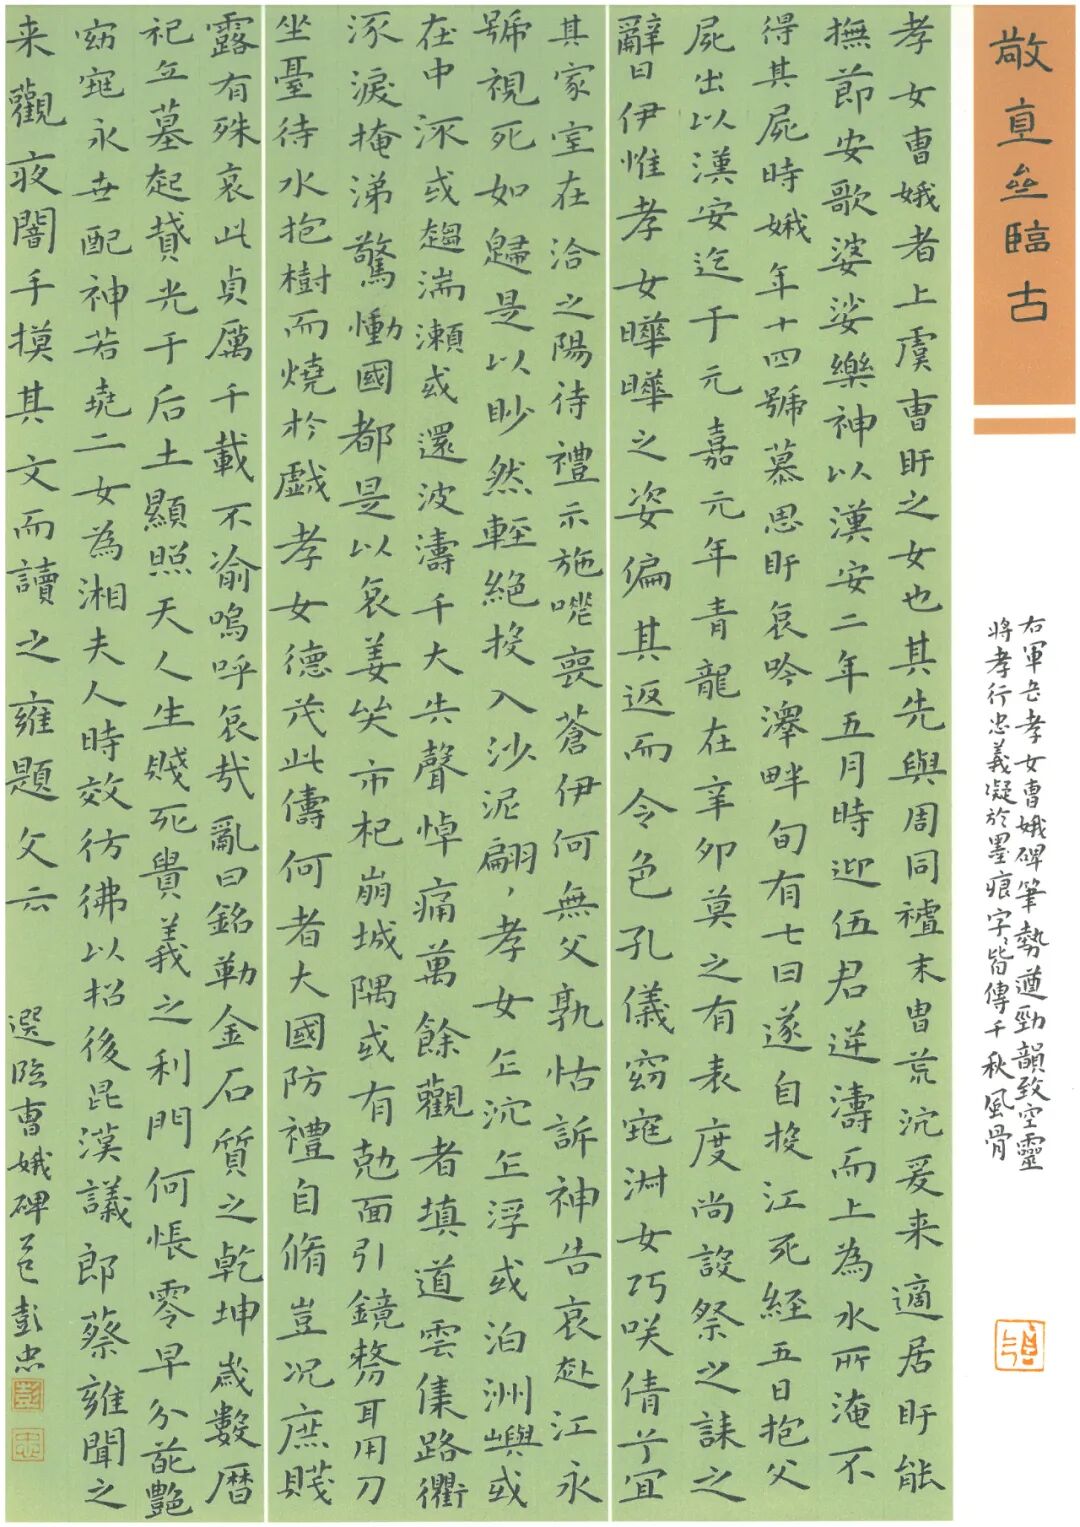 敬直臨古
右軍書孝女曹娥碑筆勢遒勁韻致空靈
將孝行忠義凝於墨痕字字皆傳千秋風骨
孝女曹娥者上虞曹盱之女也其先與周同禮末胄荒沉爰来適居盱能
撫節安歌婆娑樂神以漢安二年五月時迎伍君逆濤而上為水所淹不
得其屍時娥年十四號慕思盱哀吟澤畔旬有七日遂自投江死經五日抱父
屍出以漢安迄于元嘉元年青龍在辛卯莫之有表度尚設祭之誄之
辭曰伊惟孝女曄曄之姿偏其返而令色孔儀窈窕淑女巧咲倩兮宜
其家室在洽之陽待禮示施嗟喪蒼伊何無父孰怙訴神告哀赴江永
號視死如歸是以眇然輕絕投入沙泥翩翩孝女乍沉乍浮或泊洲嶼或
在中流或趨湍瀨或還波濤千夫失聲悼痛萬餘觀者填道雲集路衢
流淚掩涕驚慟國都是以哀姜哭市杞崩城隅或有勊面引鏡剺耳用刀
坐臺待水抱樹而燒於戲孝女德茂此儔何者大國防禮自脩豈況庶賤
露有殊哀此貞厲千載不渝嗚呼哀哉亂曰銘勒金石質之乾坤歲數曆
祀丘墓起墳光于后土顯照天人生賤死貴義之利門何悵零早分葩艷
窈窕永世配神若堯二女為湘夫人時效彷彿以招後昆漢議郎蔡雍聞之
来觀夜闇手摸其文而讀之雍題文云 選臨曹娥碑 乙巳彭忠
彭
忠